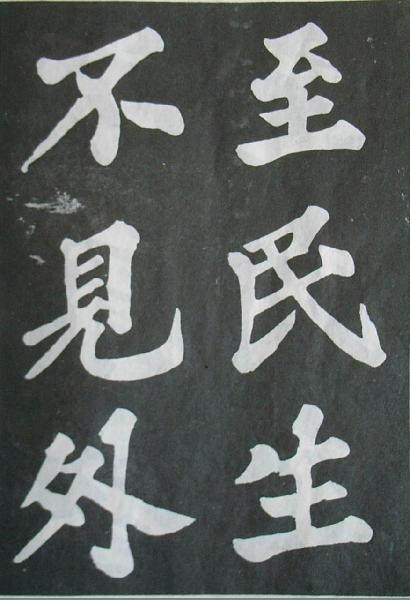 至民生
不見外